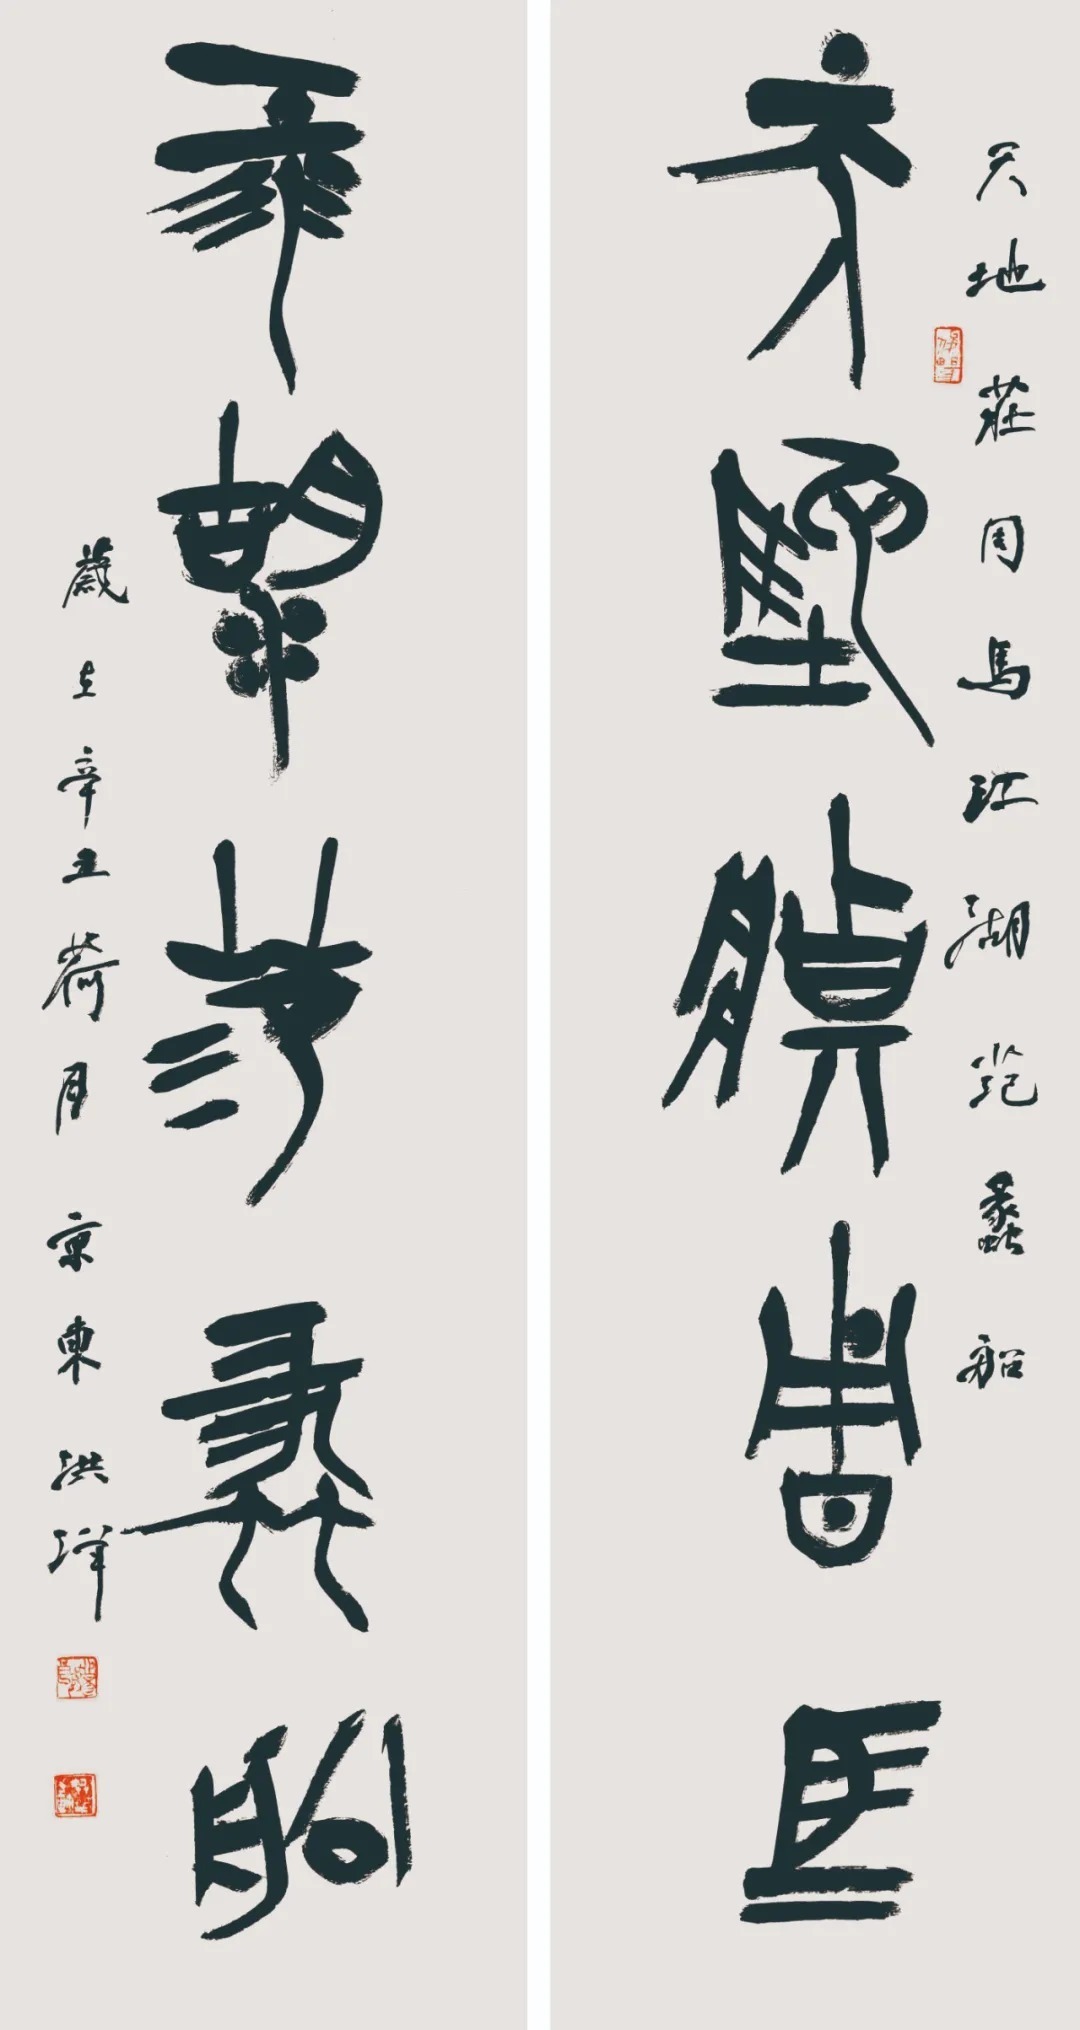 天地莊周馬江湖范蠡船
天地莊周馬
江湖范蠡船
歲在辛丑荷月京東洪洋